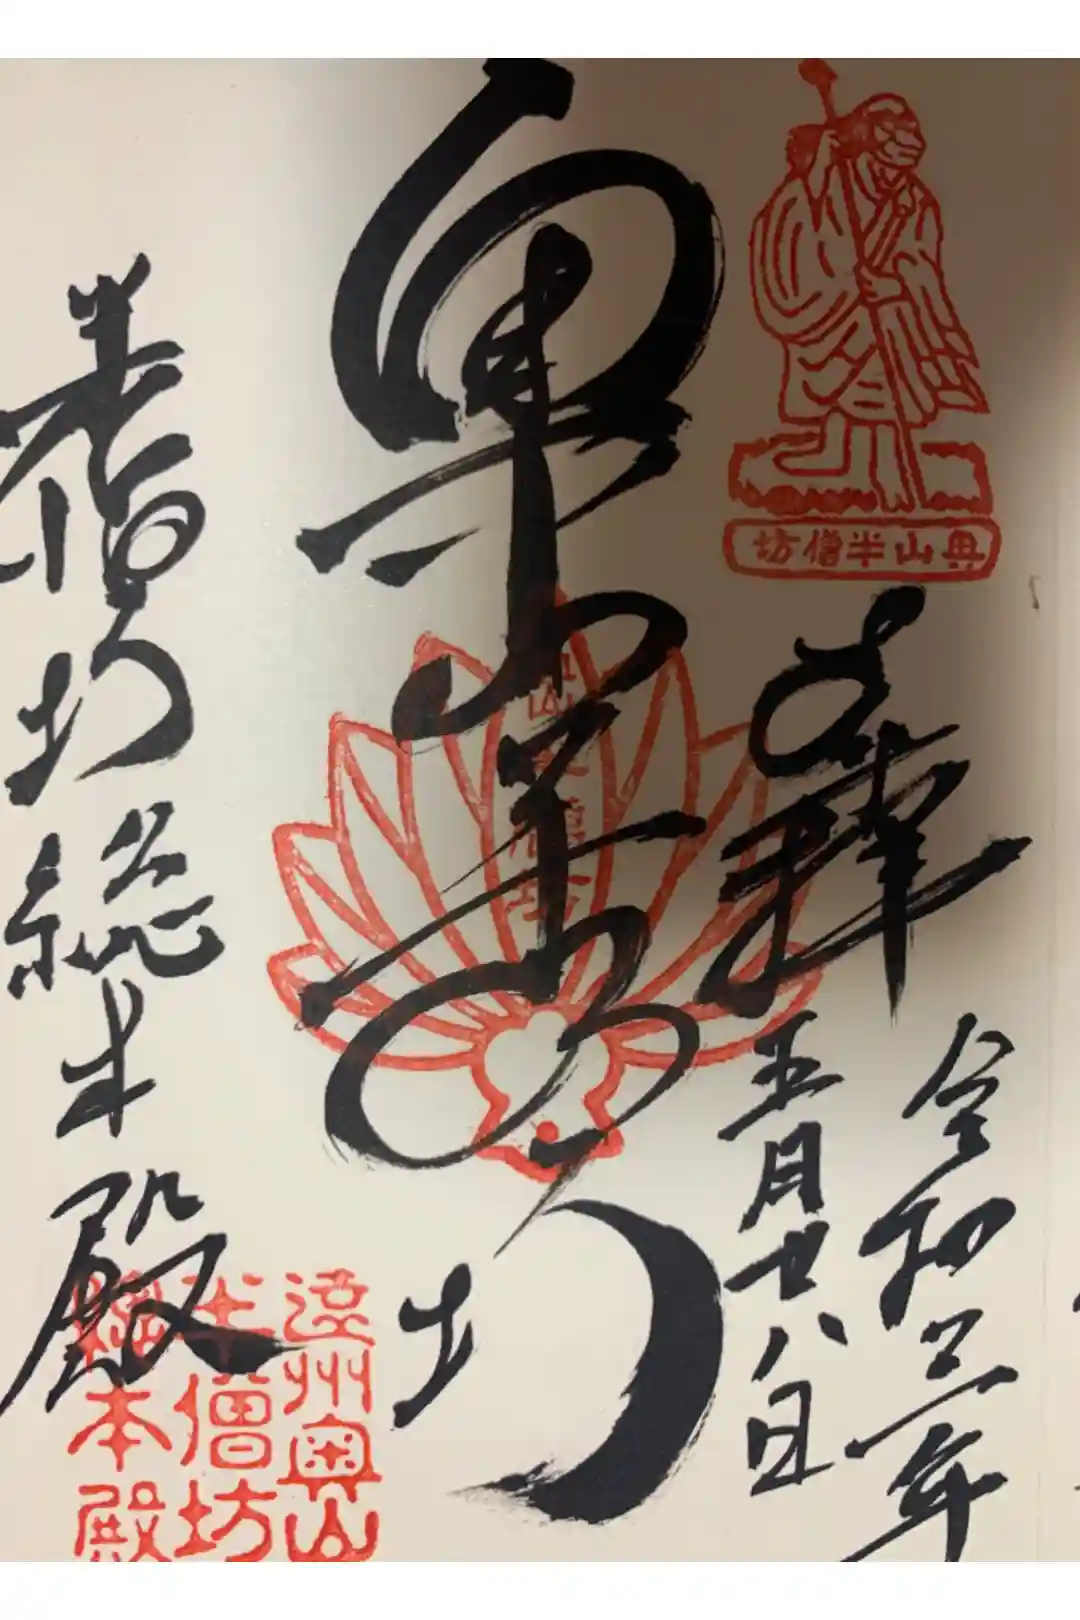 奥山半僧坊
奉拝
令和三年
五月廿八日
奥山半僧坊
半僧坊総本殿
遠州奥山
半僧坊
総本殿